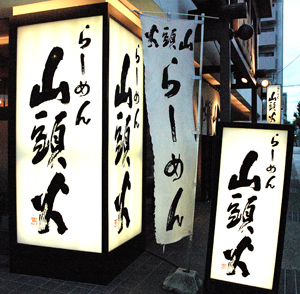 らーめん
山頭火
らーめん
山頭火
山頭火
らーめん
山頭火
らーめん
山頭火